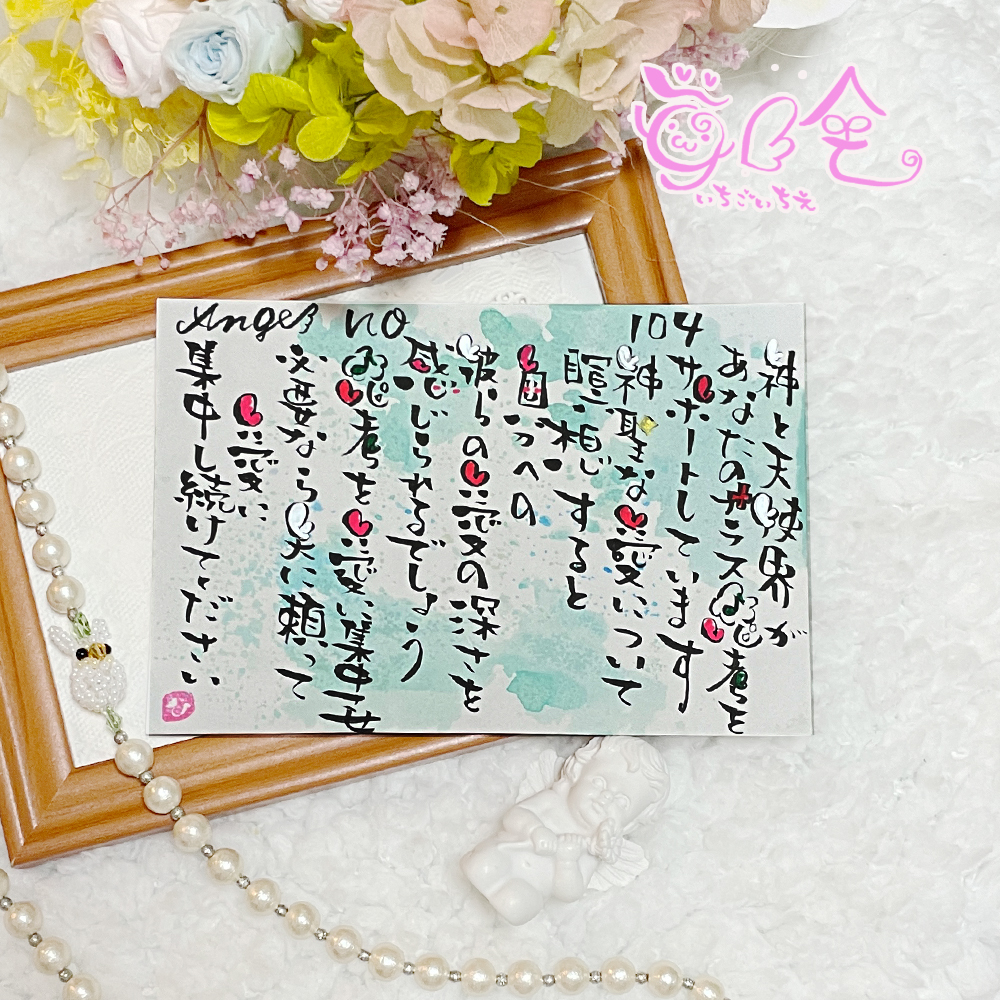 Angel no 104
神と天使界が
あなたのプラス思考を
サポートしています
神聖な愛について
瞑想すると
自分への
彼らの愛の深さを
感じられるでしょう
思考を愛に集中させ
必要なら天に頼って
愛に
集中し続けてください
いちごいちえ